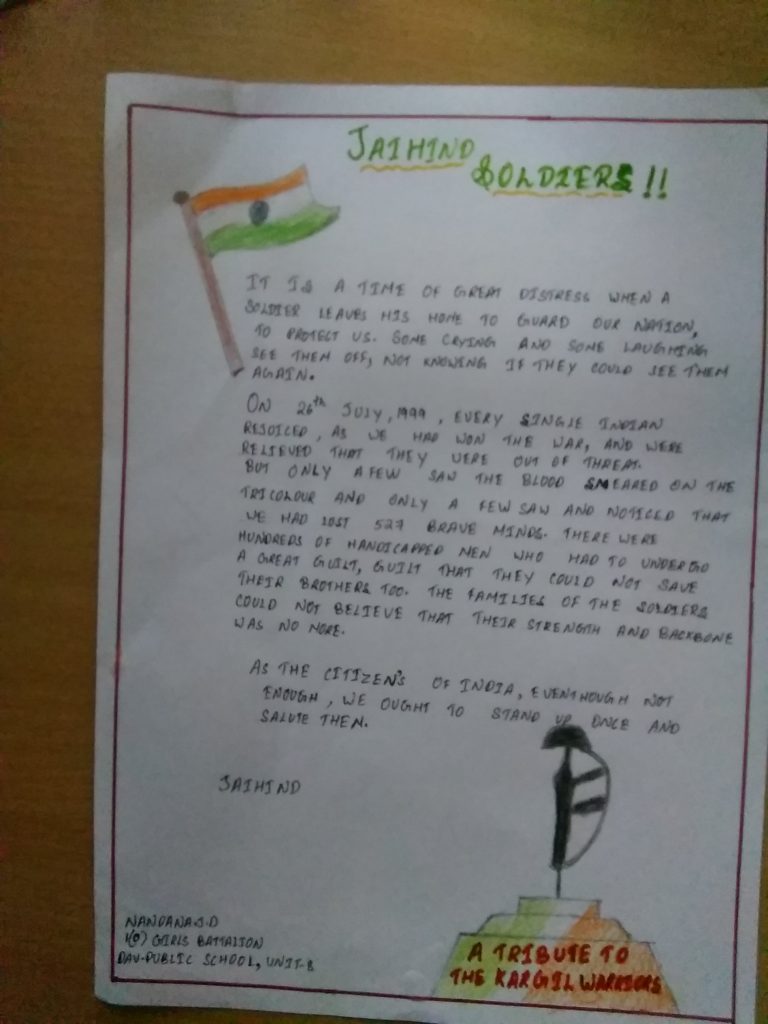 JAIHIND
SOLDIERS !!
IT IS A TIME OF GREAT DISTRESS WHEN A
SOLDIER LEAVES HIS HOME TO GUARD OUR NATION,
TO PROTECT US. SOME CRYING AND SOME LAUGHING
SEE THEM OFF, NOT KNOWING IF THEY COULD SEE THEM
AGAIN.
ON 26th JULY, 1999, EVERY SINGLE INDIAN
REJOICED, AS WE HAD WON THE WAR, AND WERE
RELIEVED THAT THEY WERE OUT OF THREAT.
BUT ONLY A FEW SAW THE BLOOD SMEARED ON THE
TRICOLOUR AND ONLY A FEW SAW AND NOTICED THAT
WE HAD LOST 527 BRAVE MINDS. THERE WERE
HUNDREDS OF HANDICAPPED MEN WHO HAD TO UNDERGO
A GREAT GUILT, GUILT THAT THEY COULD NOT SAVE
THEIR BROTHERS TOO. THE FAMILIES OF THE SOLDIERS
COULD NOT BELIEVE THAT THEIR STRENGTH AND BACKBONE
WAS NO MORE.
AS THE CITIZEN'S OF INDIA, EVENTHOUGH NOT
ENOUGH, WE OUGHT TO STAND UP ONCE AND
SALUTE THEM.
JAIHIND
NANDANA.J.D
GIRLS BATTALION
DAV-PUBLIC SCHOOL, UNIT-8
A TRIBUTE TO
THE KARGIL WARRIORS